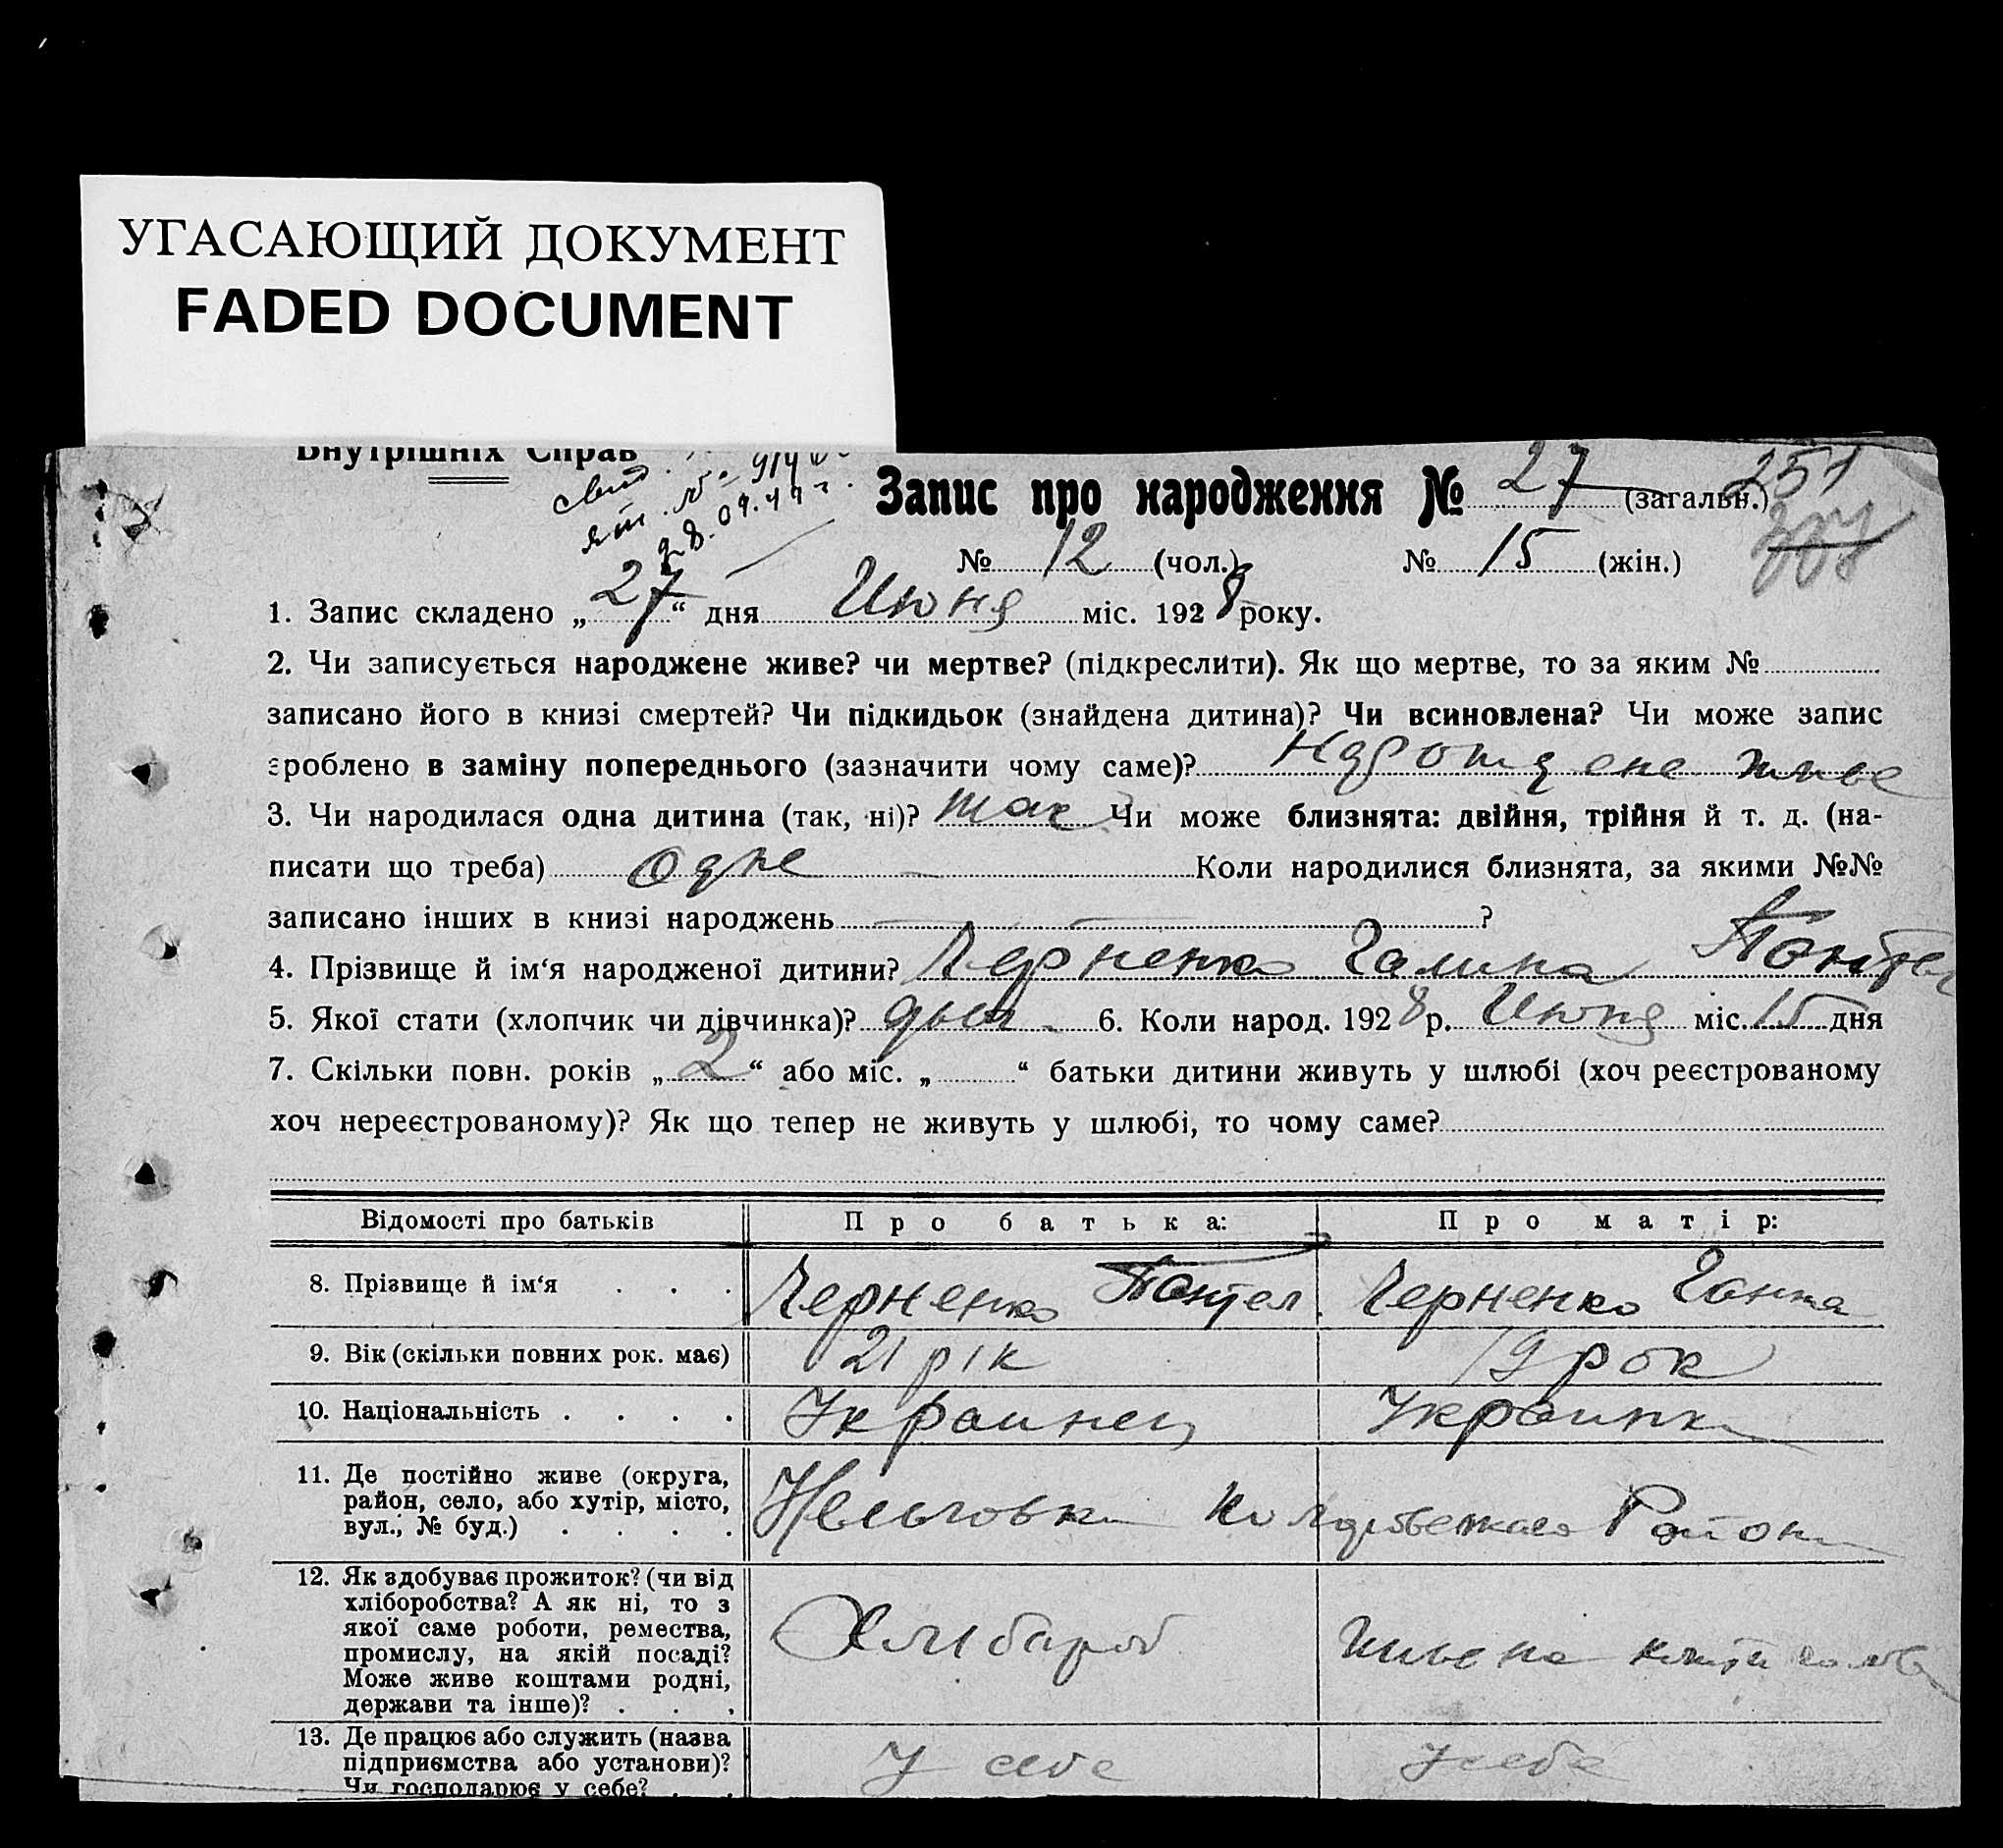 УГАСАЮЩИЙ ДОКУМЕНТ
FADED DOCUMENT
Внутрішніх Справ
28.09.44 г.
Запис про народження № 27 (загальн.) 251
№ 12 (чол.) № 15 (жін.)
1. Запис складено „27“ дня Июня міс. 1928 року.
2. Чи записується народжене живе? чи мертве? (підкреслити). Як що мертве, то за яким №
записано його в книзі смертей? Чи підкидьок (знайдена дитина)? Чи всиновлена? Чи може запис
зроблено в заміну попереднього (зазначити чому саме)? живе
3. Чи народилася одна дитина (так, ні)? так Чи може близнята: двійня, трійня й т. д. (на-
писати що треба) одне Коли народилися близнята, за якими №№
записано інших в книзі народжень ?
4. Прізвище й ім‘я народженої дитини? Черненко Галина Пантел
5. Якої стати (хлопчик чи дівчинка)? 6. Коли народ. 1928 р. Июня міс. 15 дня
7. Скільки повн. років „2“ або міс. „ “ батьки дитини живуть у шлюбі (хоч реєстрованому
хоч нереєстрованому)? Як що тепер не живуть у шлюбі, то чому саме?
Відомості про батьків Про батька: Про матір:
8. Прізвище й ім‘я . . . Черненко Пантел. Черненко Ганна
9. Вік (скільки повних рок. має) 21 рік 19 рок
10. Національність . . . . Украинец Украинка
11. Де постійно живе (округа,
район, село, або хутір, місто,
вул., № буд.) . . . . Район
12. Як здобуває прожиток? (чи від
хліборобства? А як ні, то з
якої саме роботи, ремества,
промислу, на якій посаді?
Може живе коштами родні,
держави та інше)? . . . Хлибороб
13. Де працює або служить (назва
підприємства або установи)?
Чи господарює у себе? . . У себе У себе